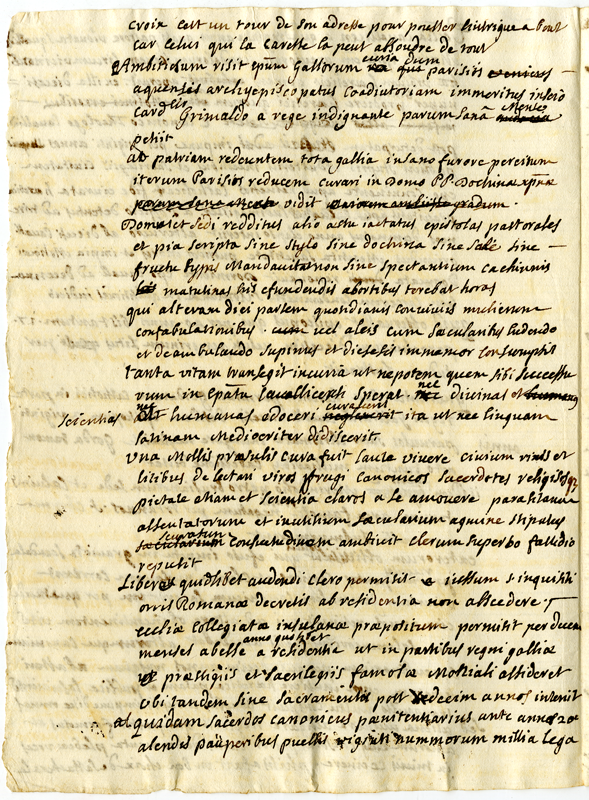 croix c'est un tour de son adresse pour pousser l'intrigue a bout
car celui qui la careste la peut absoudre de tout
Ambitiosum visit epum Gallorum curia dum parisiis
aquensis archyepiscopatus coadiutoriam immeritus inscio
card lis Grimaldo a rege indignante parum sanâ mentes
petiit
ab patriam redeuntem tota gallia insano furore percitum
iterum Parisios reducem curari in Domo PP. Doctrinæ xpnæ
vidit
et sedi redditus alio actu iactatus epistolas pastorales
et pia scripta sine stylo sine doctrina sine sale sine
fructu typis mandavit non sine spectantium cachinnis
matutinas his effundendis abortibus terebat horas
qui alteram diei partem quotidianis conviviis mulierum
confabulationibus . cum vel aleis cum sæcularibus ludendo
et deambulando supinus et diesesis immemor consumpsit
tanta vitam transegit incuria ut nepotem quem sibi successu
rum in epatu cavallicensi sperat . nec divinas et
scientias humanas edoceri curaverit ita ut nec linguam
latinam mediocriter didiscerit.
una mollis præsulis cura fuit laute vivere civium rixis et
litibus delectari viros frugi canonicos sacerdotes religiosos
pietate etiam et scientia claros a se amovere parasitarum
assentatorum et inutilium sæcularium agmine stipatus
consuetudinem ambivit clerum superbo fastidio
repulit
quidlibet audendi clero permisit iussum s inquisiti
onis Romanæ decretis ab residentia non abscedere,
eccliæ collegiatæ insulanæ præpositum permisit per decem
menses abesse anno quolibet a residentia ut in partibus regni galliæ
præstigiis et sacrilegiis famosæ assideret
ubi tandem sine sacramentis post decem annos interiit
quidam sacerdos canonicus pænitentiarius ante annos 20
alendis pauperibus puellis viginti nummorum millia lega